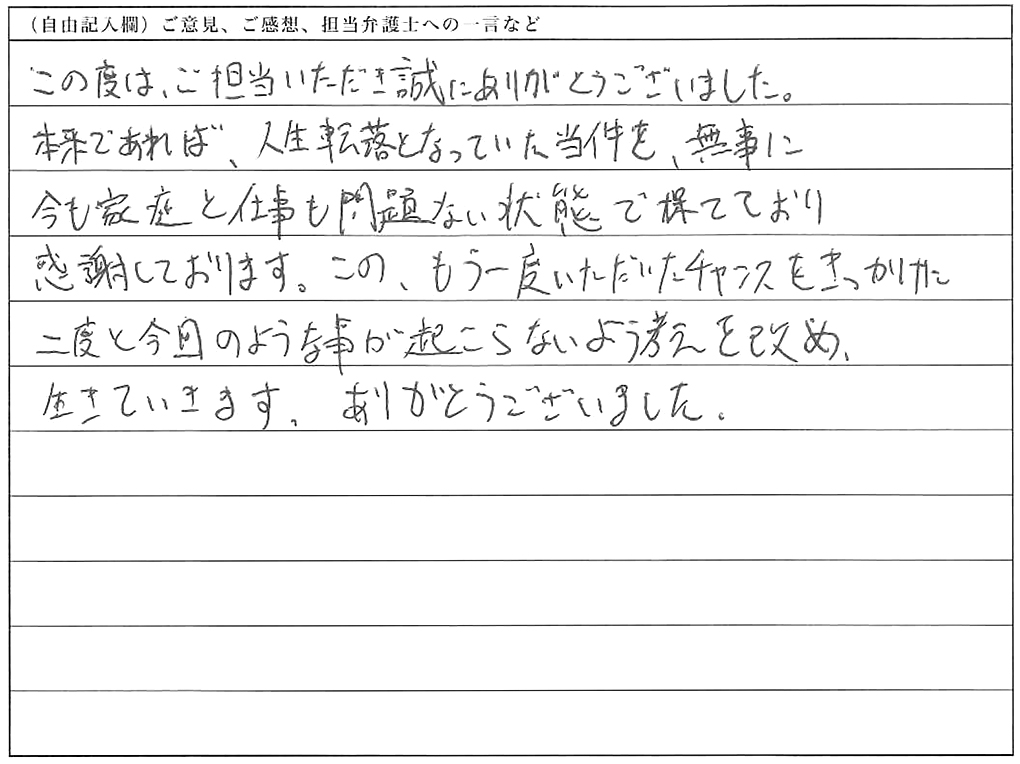 （自由記入欄）ご意見、ご感想、担当弁護士への一言など
この度は、ご担当いただき誠にありがとうございました。
本来であれば、人生転落となっていた当件を、無事に
今も家庭と仕事も問題ない状態で保てており
感謝しております。この、もう一度いただいたチャンスをきっかけに
二度と今回のような事が起こらないよう考えを改め、
生きていきます。ありがとうございました。